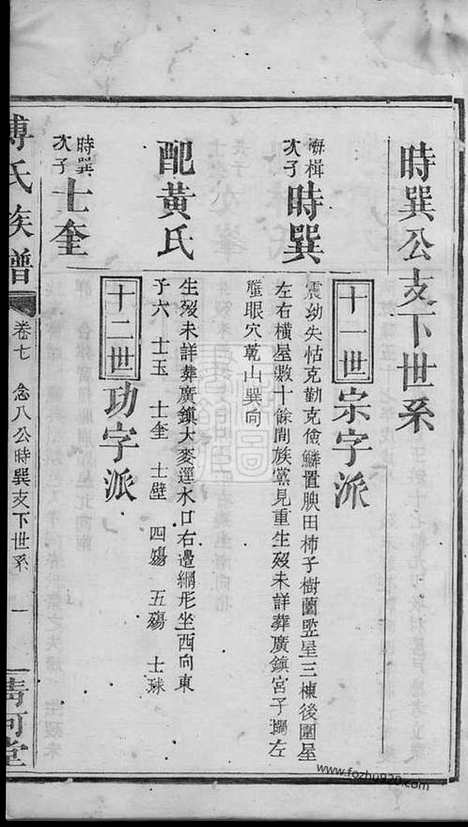 時巽公支下世系
十一世 宗字派
楫次子 時巽
震幼失怙克勤克儉鱗置腴田柿子樹蘭監屋三棟後圍屋
左右橫屋數十餘間族黨見重生歿未詳葬廣鎮宮子壩左
壟眼穴乾山巽向
配黃氏
生歿未詳葬廣鎮大麥逕水口右邊網形坐西向東
子六 士玉 士奎 士壁 四殤 五殤 士球
十二世 功字派
時巽次子 士奎
傅氏族譜
卷七 念八公時巽支下世系 一
清河堂
www.fozhu920.com